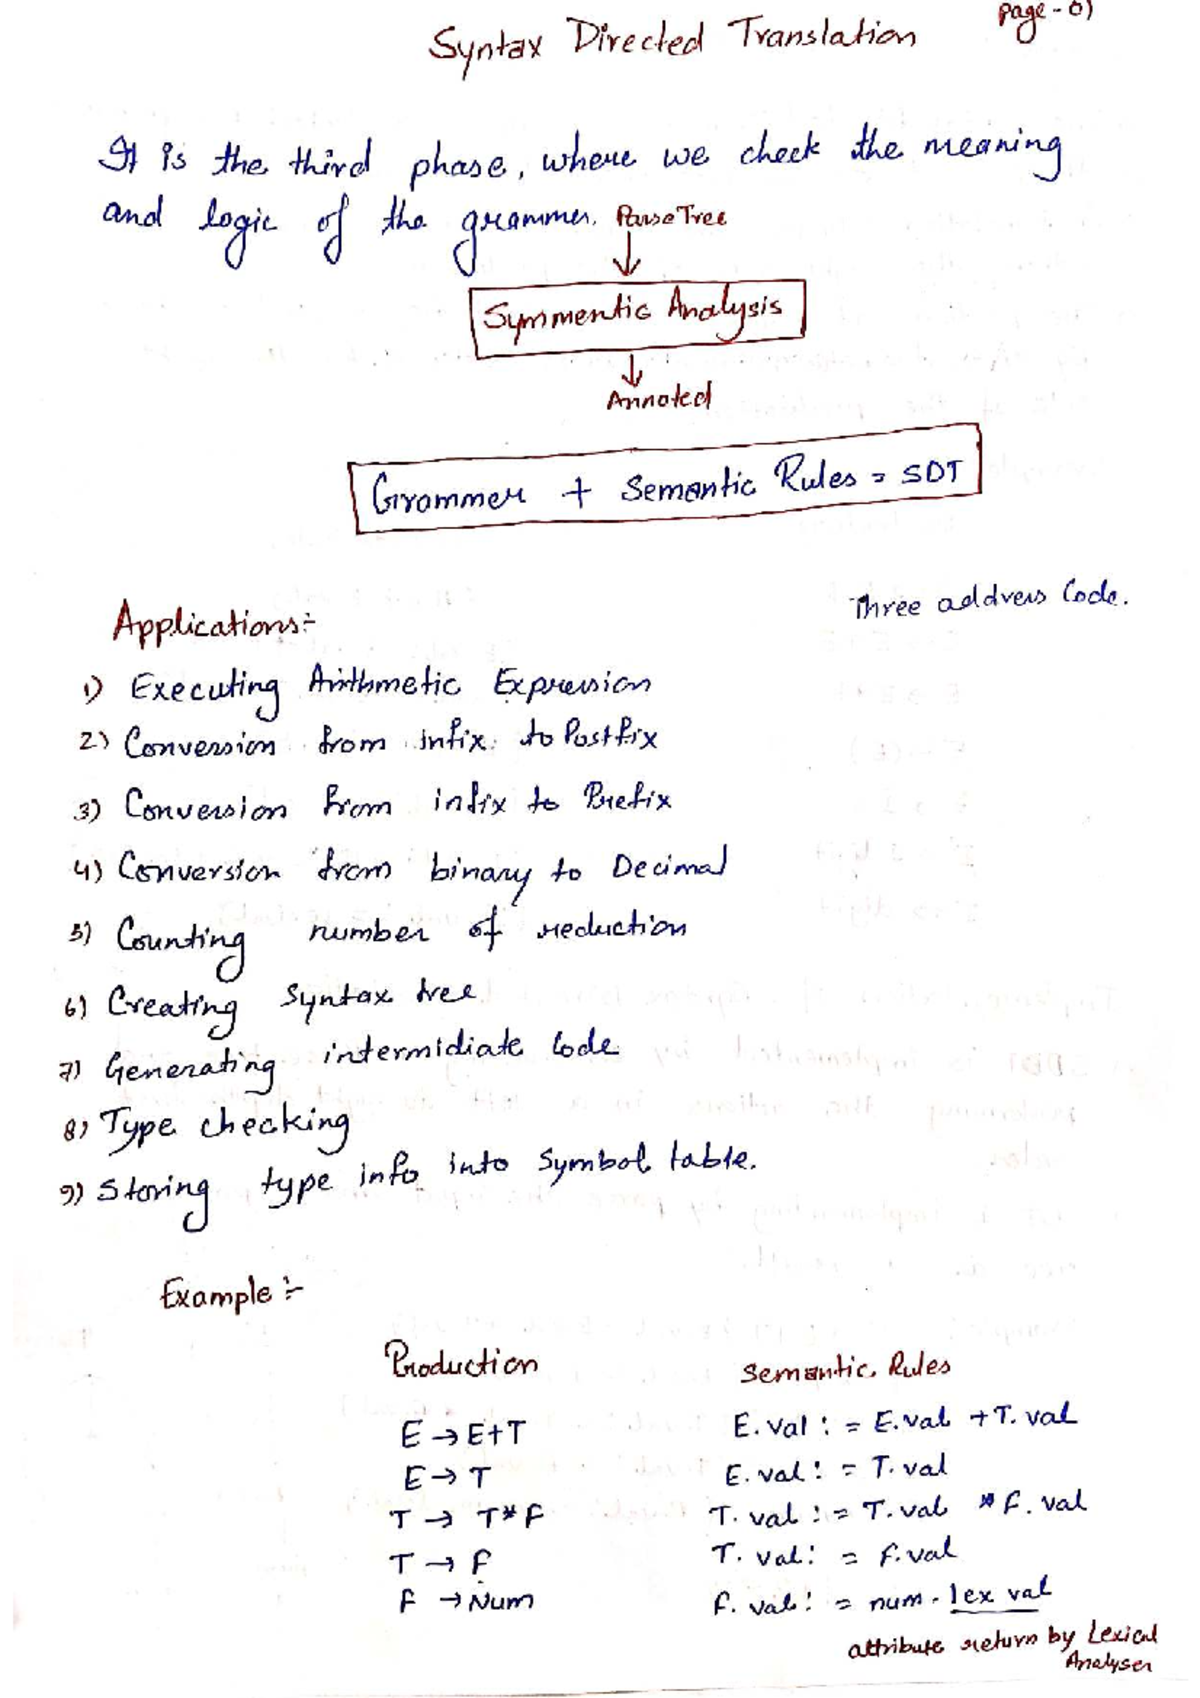 page-01
Syntax Directed Translation
It is the third phase, where we check the meaning
and logic of the grammer. Parse Tree
Symmentic Analysis
Annoted
Grammer + Semantic Rules = SDT
Three address Code.
Applications:-
1) Executing Arithmetic Expression
2) Conversion from infix to Postfix
3) Conversion from infix to Prefix
4) Conversion from binary to Decimal
5) Counting number of reduction
6) Creating Syntax tree
7) Generating intermidiate Code
8) Type checking
9) Storing type info into Symbol table.
Example:-
Production Semantic Rules
E → E+T E.val := E.val + T.val
E → T E.val := T.val
T → T*F T.val := T.val * F.val
T → F T.val := F.val
F → Num F.val := num.lex val
attribute return by Lexical
Analyser